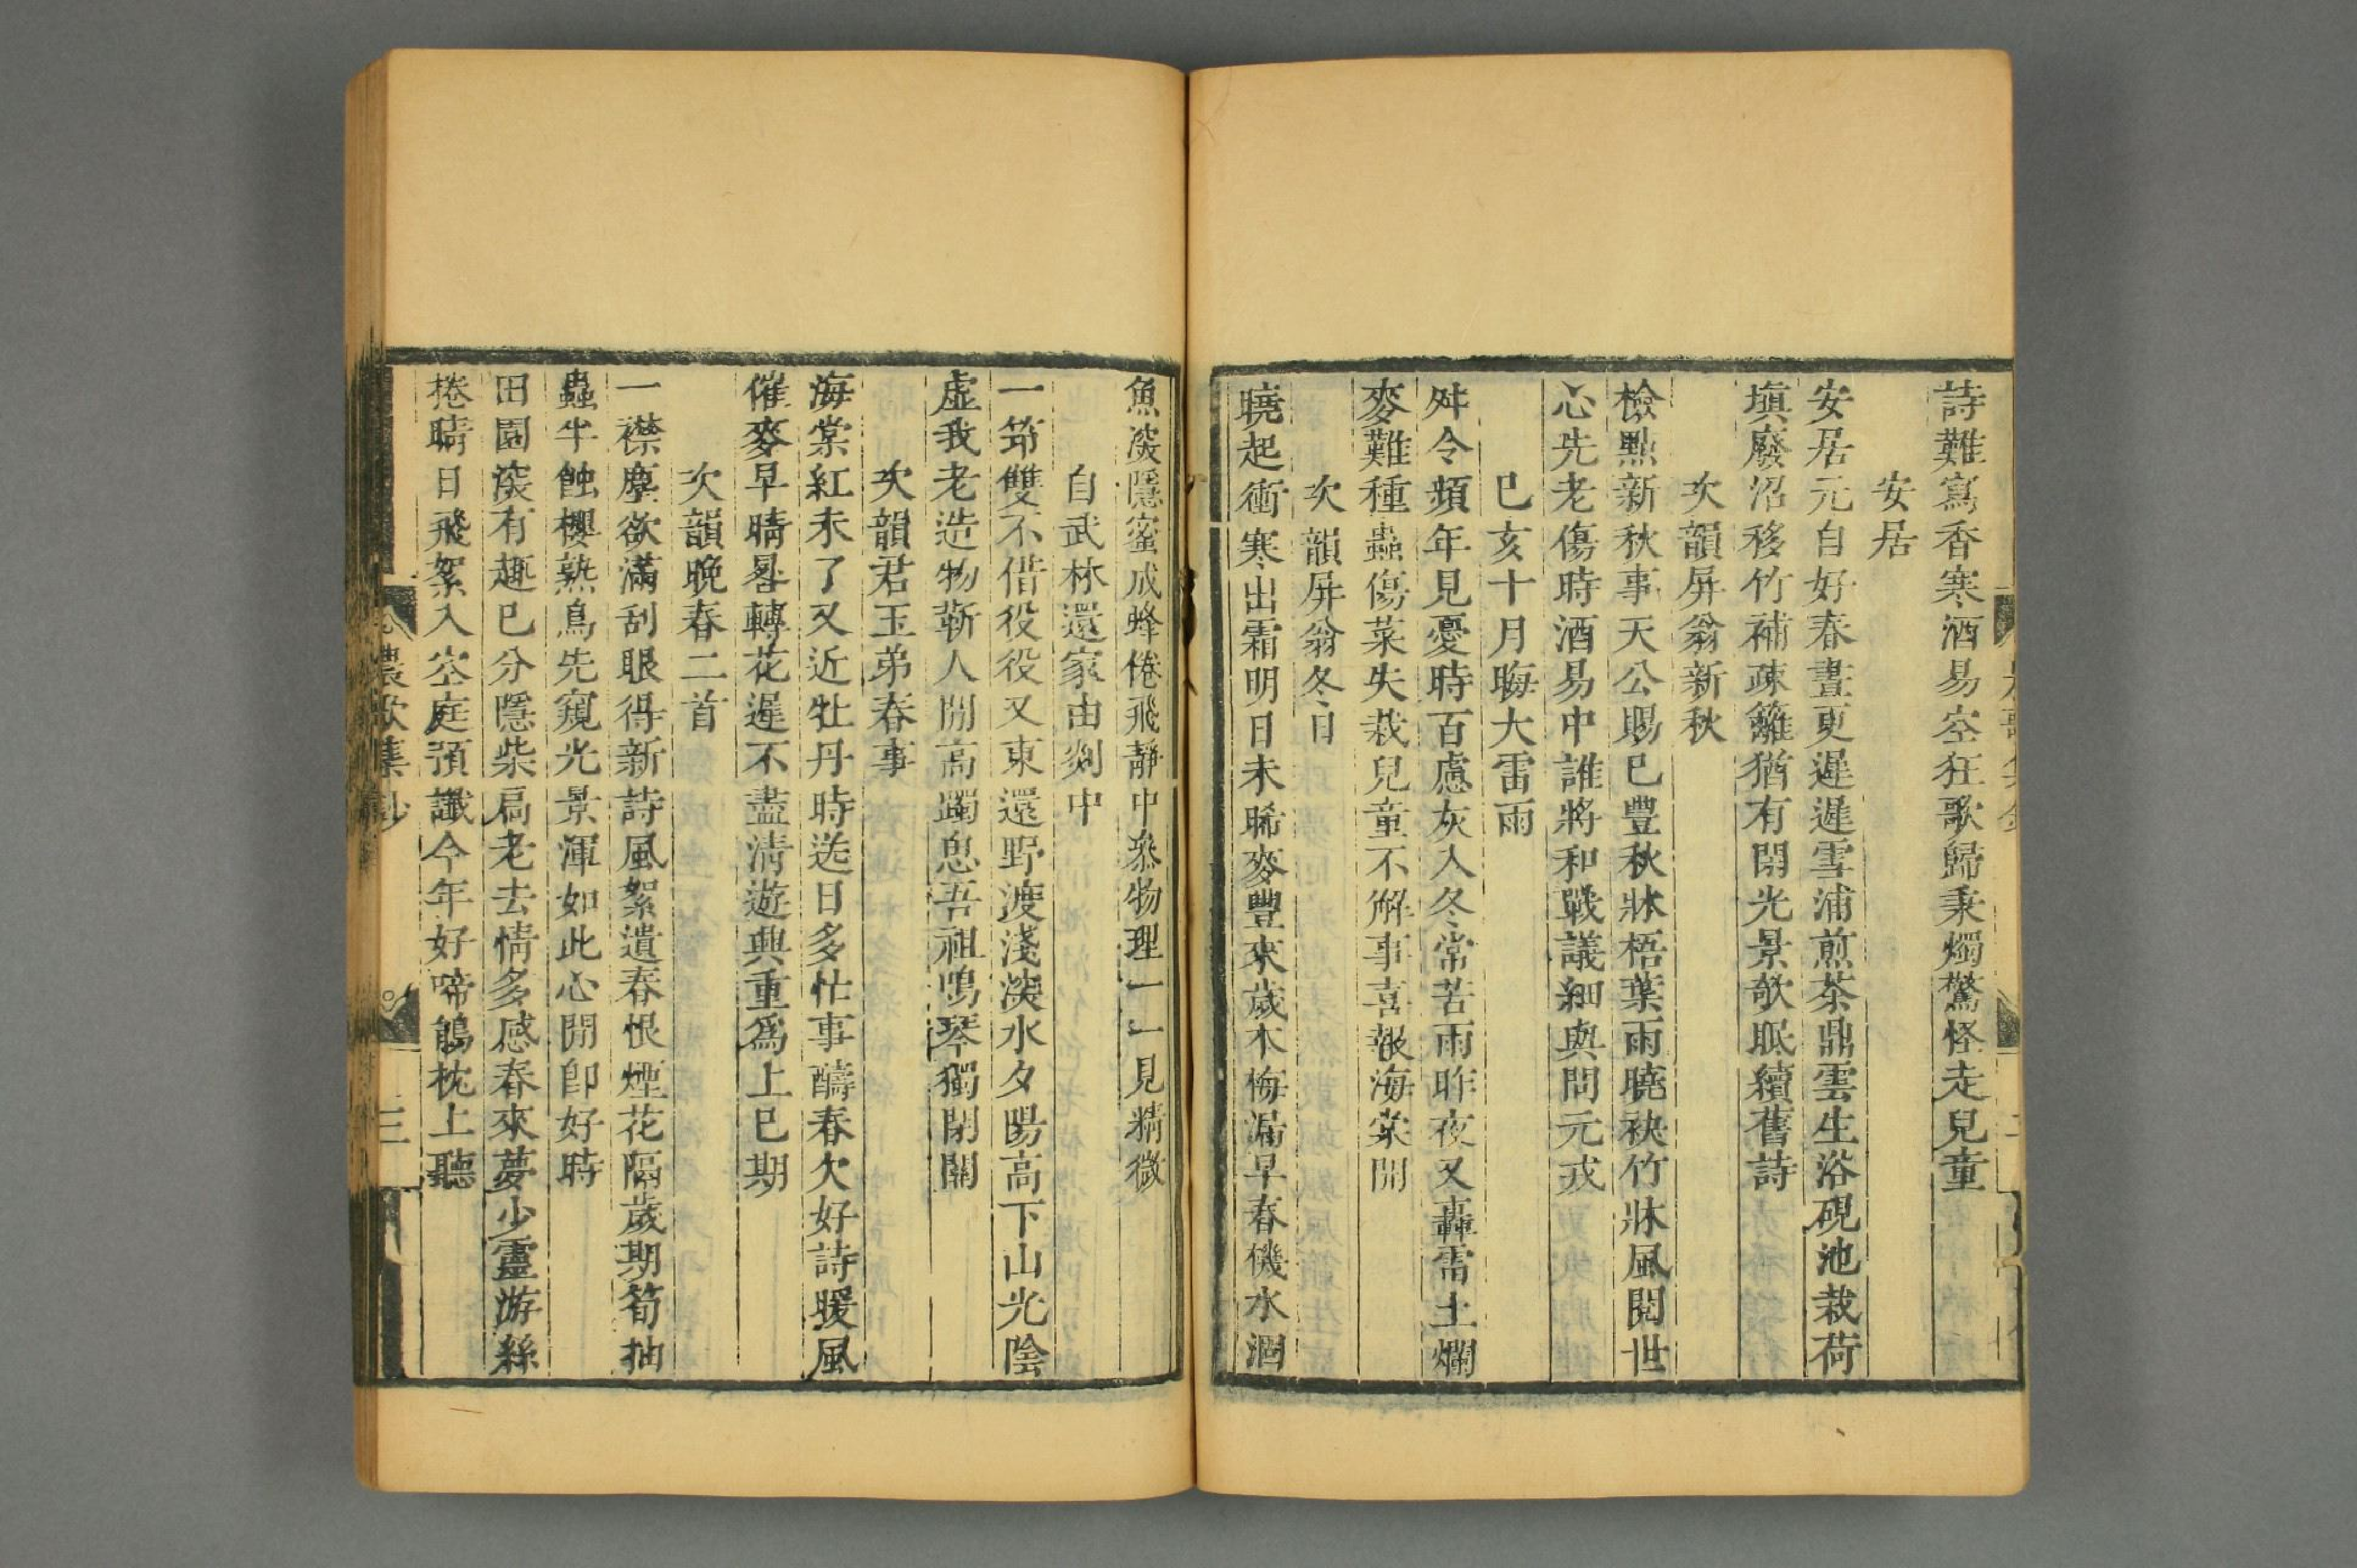 詩難寫香寒酒易空狂歌歸秉燭驚怪走兒童
安居
安居元自好春晝更遲遲雪浦煎茶鼎雲生浴硯池栽荷
塡廢沼移竹補疎籬猶有閒光景欹眠續舊詩
次韻屏翁新秋
檢點新秋事天公賜已豐秋牀梧葉雨曉袂竹牀風閱世
心先老傷時酒易中誰將和戰議細與問元戎
已亥十月晦大雷雨
舛令頻年見憂時百慮灰入冬常苦雨昨夜又轟雷土爛
麥難種蟲傷菜失栽兒童不解事喜報海棠開
次韻屏翁冬日
曉起衝寒出霜明日未晞麥豐來歲本梅漏早春機水涸
魚深隱蜜成蜂倦飛靜中叅物理一一見精微
自武林還家由剡中
一筇雙不借役役又東還野渡淺淺水夕陽高下山光陰
虛我老造物靳人閒高躅息吾祖鳴琴獨閉關
次韻君玉弟春事
海棠紅未了又近牡丹時送日多忙事醻春欠好詩暖風
催麥早晴晷轉花遲不盡淸遊興重爲上巳期
次韻晚春二首
一襟塵欲滿刮眼得新詩風絮遺春恨煙花隔歲期筍抽
蟲半蝕櫻熟鳥先窺光景渾如此心閒卽好時
田園深有趣已分隱柴扃老去情多感春來夢少靈游絲
捲晴日飛絮入空庭預讖今年好啼鶬枕上聽
農歌集鈔
三